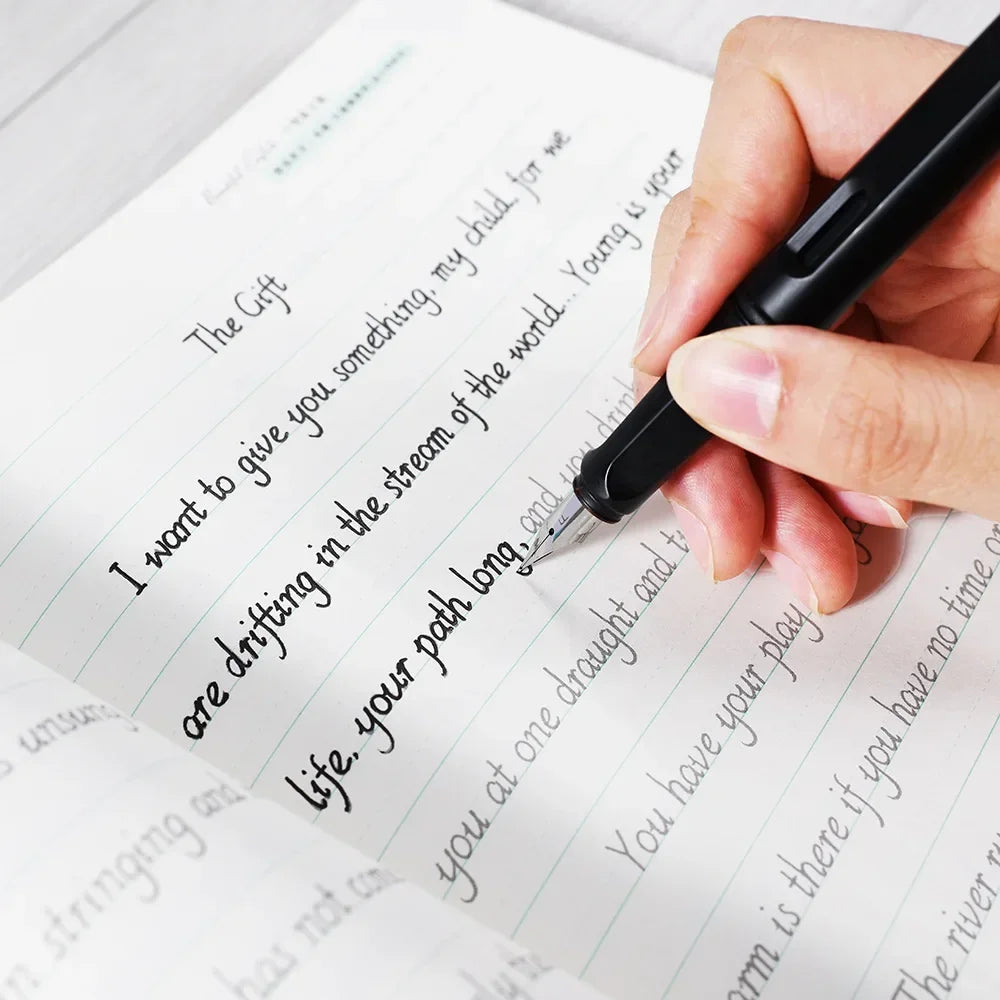 The Gift
I want to give you something, my child. for we
are drifting in the stream of the world... Young is your
life, your path long, and you drink
you at one draught and
You have your play
is there if you have no time
The river
unsung
stringing and
has not